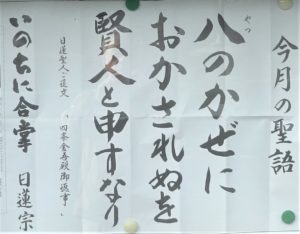 今月の聖語
八のかぜに
やつ
おかされぬを
賢人と申すなり
日蓮聖人ご遺文
「四条金吾殿御返事」
いのちに合掌 日蓮宗